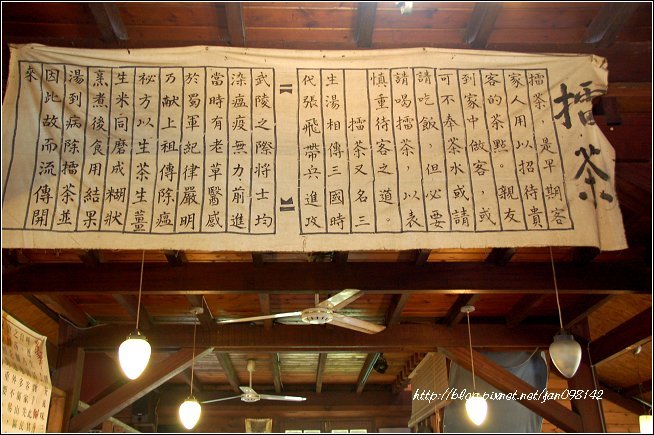 擂茶
擂茶,是早期客
家人用以招待貴
客的茶點。親友
到家中做客,或
可不奉茶水或請
請吃飯,但必要
請喝擂茶,以表
慎重待客之道。
擂茶又名三
生湯相傳三國時
代張飛帶兵進攻
武陵之際將士均
染瘟疫無力前進
當時有老草醫感
於蜀軍紀律嚴明
乃献上祖傳除瘟
秘方以生茶生薑
生米同磨成糊狀
烹煮後食用結果
湯到病除擂茶並
因此故而流傳開
來
http://blog.pixnet.net/jan098142